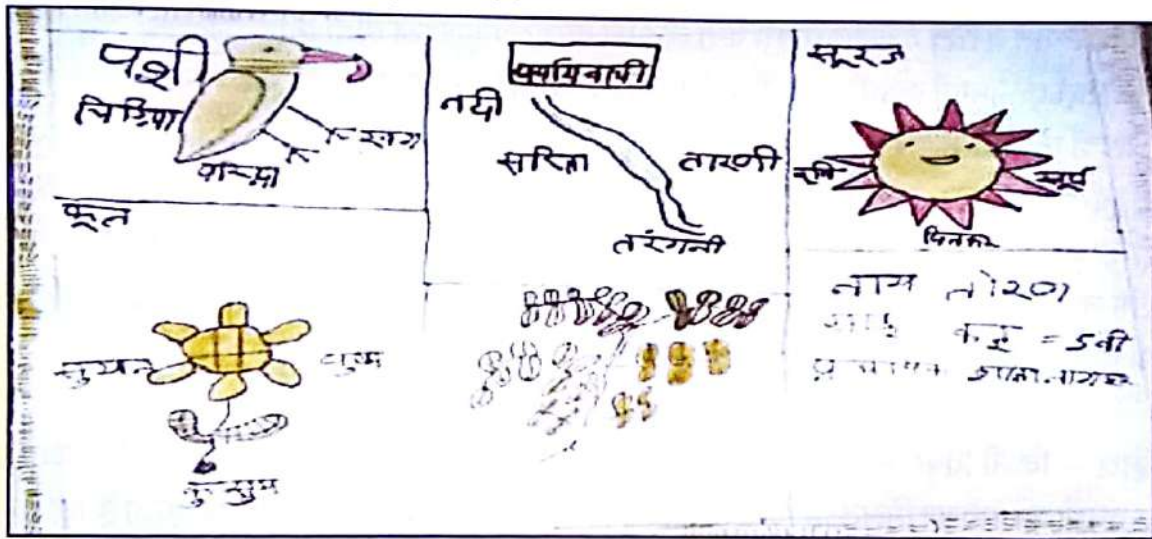 पक्षी
चिड़िया
खग
पर्यायवाची
नदी
सरिता
तारणी
तरंगनी
सूरज
रवि
सूर्य
दिनकर
फूल
सुमन
पुष्प
कुसुम
नाम तोरण
= 5वी